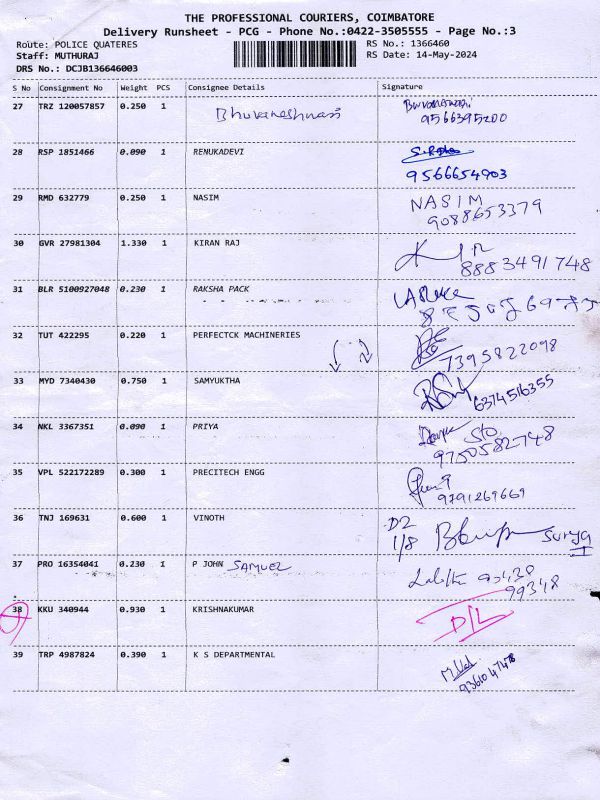 THE PROFESSIONAL COURIERS, COIMBATORE
Delivery Runsheet - PCG - Phone No.:0422-3505555 - Page No.:3
Route: POLICE QUATERES RS No.: 1366460
Staff: MUTHURAJ RS Date: 14-May-2024
DRS No.: DCJB136646003
S No Consignment No Weight PCS Consignee Details Signature
27 TRZ 120057857 0.250 1 Bhuvaneshwari
9566395200
28 RSP 1851466 0.090 1 RENUKADEVI
9566654903
29 RMD 632779 0.250 1 NASIM NASIM
9088653379
30 GVR 27981304 1.330 1 KIRAN RAJ
8883491748
31 BLR 5100927048 0.230 1 RAKSHA PACK
32 TUT 422295 0.220 1 PERFECTCK MACHINERIES
7395822098
33 MYD 7340430 0.750 1 SAMYUKTHA
6374516355
34 NKL 3367351 0.090 1 PRIYA
9750582748
35 VPL 522172289 0.300 1 PRECITECH ENGG
9791269669
36 TNJ 169631 0.600 1 VINOTH D2
1/8 Surya
II
37 PRO 16354041 0.230 1 P JOHN SAMUEL Lalitha 95438
99348
38 KKU 340944 0.930 1 KRISHNAKUMAR D/L
39 TRP 4987824 0.390 1 K S DEPARTMENTAL
9361047478